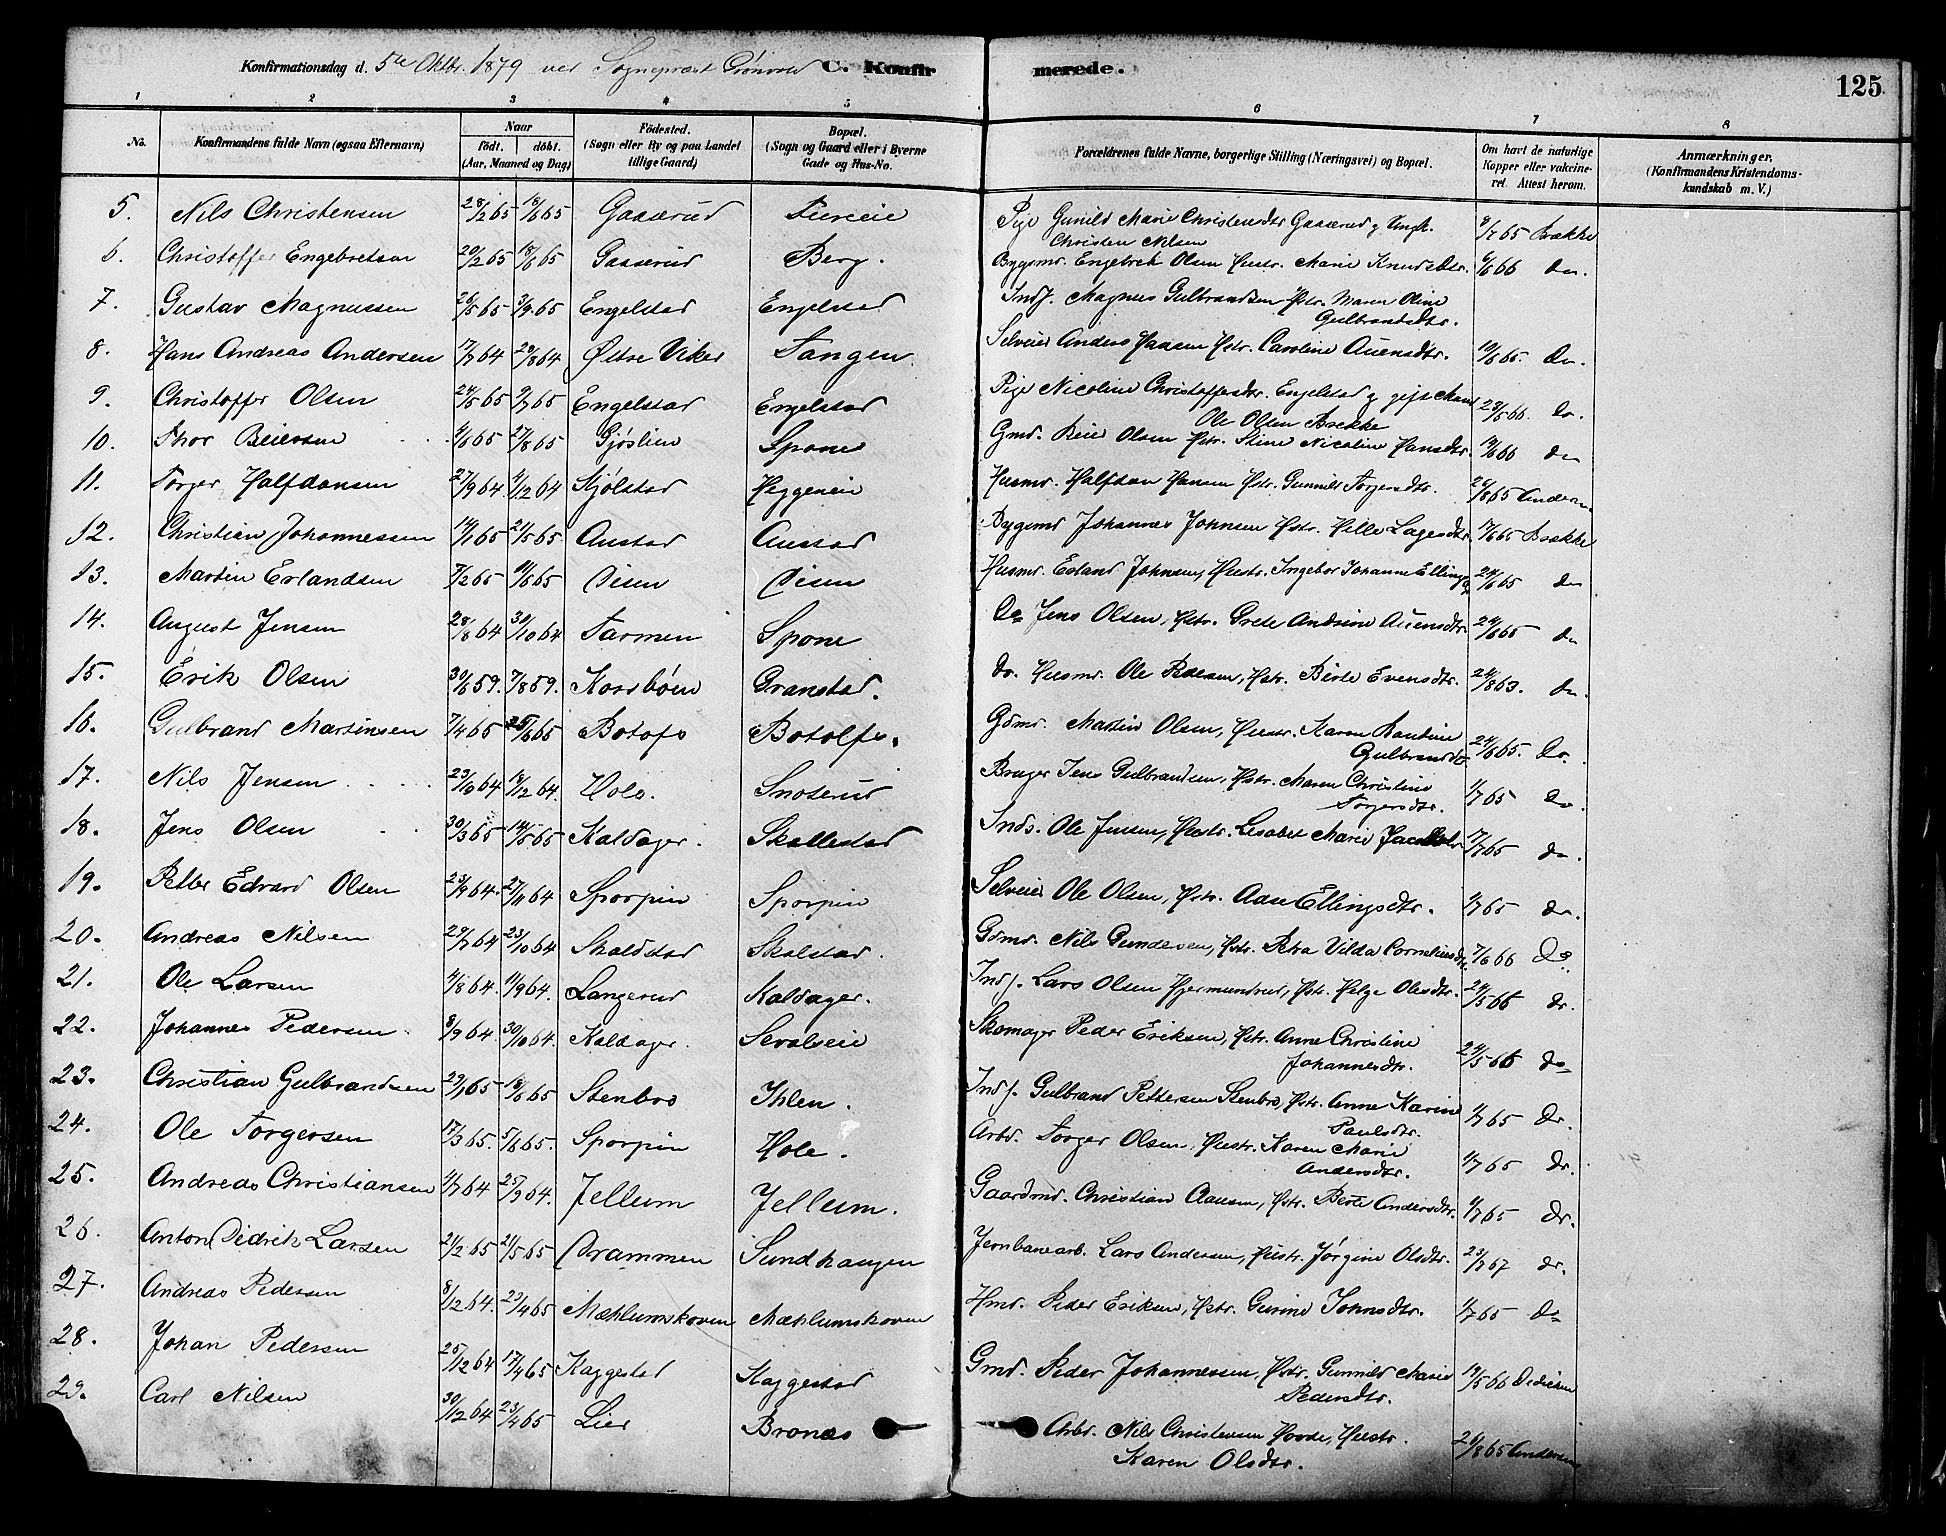 Konfirmationsdag d. 5te Oktbr. 1879 ved Sogneprest Grönvold C. Konfirmerede. 125
1 2 3 4 5 6 7 8
No. Konfirmandens fulde Navn (ogsaa Efternavn). Naar födt. döbt. (Aar, Maaned og Dag) Födested. (Sogn eller By og paa Landet tillige Gaard.) Bopæl. (Sogn og Gaard eller i Byerne Gade og Hus-No. Forældrenes fulde Navne, borgerlige Stilling (Næringsvei) og Bopæl. Om havt de naturlige Kopper eller vakcineret. Attest herom. Anmærkninger. (Konfirmandens Kristendomskundskab m. V.)
5. Nils Christensen 28/2 65 18/6 65 Gaaserud Pige Gunild Marie Christensdtr Gaaserud g Ungk. 8/7 65 Brække
Christen Nilsen
6. Christoffer Engebretsen 20/2 65 18/6 65 Gaaserud Berg. Bygsmd. Engebret Olsen Hustr. Marie Knudsdtr. 9/6 66 Do.
7. Gustav Magnussen 26/5 65 3/9 65 Engelstad Engelstad Indj. Magnus Gulbrandsen Hstr. Maren Oline
Gulbrandsdtr.
8. Hans Andreas Andersen 17/7 64 29/8 64 Østre Viker Tangen. Selveier Anders Hansen Hstr. Caroline Auensdtr. 19/6 65. Do.
9. Christoffer Olsen 24/5 65 9/7 65 Engelstad Engelstad Pige Nicoline Christoffersdtr. Engelstad g gift Mand 29/5 66. Do.
Ole Olsen Brekke
10. Thor Beiersen 4/6 65 27/8 65 Gjøslien Spone Gmd. Beier Olsen Hstr. Stine Nicoline Hansdtr. 19/6 66 Do
11. Torger Halfdansen 27/9 64 4/12 64 Kjølstad Heggeneie Husmd. Halfdan Hansen Hstr. Gunnild Torgersdtr. 29/8 65 Andersen
12. Christian Johannessen 14/1 65 21/5 65 Austad Austad Bygsmd Johannes Johnsen Hstr. Hille Lagesdtr. 17/6 65 Brække
13. Martin Erlandsen 7/2 65 11/6 65 Disen Disen Husmd. Erland Johnsen, Hustr. Ingebor Johanne Ellings 24/6 65 do
14. August Jensen 28/8 64 30/10 64 Tarmen Spone Do Jens Olsen, Hstr. Grete Andrine Auensdtr 24/6 65 do
15. Erik Olsen 30/6 59. 7/8 59. Korsbøen Granstad. do. Husmd. Ole Pedersen, Hstr. Birte Evensdtr. 24/8 63. do.
16. Gulbrand Martinsen 7/4 65 25/6 65 Botofs Botolfs. Gdmd. Martin Olsen, Hustr. Karen Bentine 24/6 65. Do.
Gulbrandsd
17. Nils Jensen 23/10 64 18/12 64. Hole. Snoterud Bruger Jens Gulbrandsen, Hstr. Maren Christine 1/7 65 Do
Torgersdtr.
18. Jens Olsen 30/3 65 14/5 65 Kaldager. Skallestad Inds. Ole Jensen, Hustr. Lisabet Marie Jacobsdtr 17/7 65 do.
19. Petter Edvard Olsen 23/9 64. 27/11 64 Sporpin Sporpin Selveier Ole Olsen, Hstr. Aase Ellingsdtr. 1/7 65 do.
20. Andreas Nilsen 29/7 64 23/10 64 Skaldstad Skalstad. Gdmd. Nils Gundersen, Hstr. Petra Vilda Corneliusdtr. 7/6 66 Do.
21. Ole Larsen 4/8 64. 11/9 64. Langerud Kaldager. Indj. Lars Olsen Hjermundrud, Hstr. Helge Olesdtr. 29/5 66 dr.
22. Johannes Pedersen. 8/9 64 30/10 64. Kaldager. Sevalseie Skomager Peder Eriksen, Hstr. Anne Christine 29/5 66 do
Johannesdtr.
23. Christian Gulbrandsen 29/1 65 18/6 65 Stenbro Ihlen. Indj. Gulbrand Pettersen Stenbro, Hstr. Anne Karine 1/7 65 Dr.
Paulsdtr.
24. Ole Torgersen 17/3 65. 5/6 65. Sporpin Hole. Arbd. Torger Olsen, Hustr. Karen Marie 1/7 65 Dr.
Andersdtr.
25. Andreas Christiansen 1/7 64 25/9 64. Jellum Jellum. Gaardmd. Christian Aausen, Hstr. Berte Andersdtr. 1/7 65 Dr.
26. Anton Didrik Larsen 21/2 65 21/5 65 Drammen Sundhaugen Jernbanearb. Lars Andersen, Hustr. Jørgine Olsdtr. 23/7 67 dr.
27. Andreas Pedersen 8/12 64. 23/4 65 Mæhlumskoven Mæhlumskoven Hmd. Peder Eriksen, Hstr. Gurine Johnsdtr. 1/7 65 Do
28. Johan Pedersen 25/12 64 17/4 65 Kaggestad Kaggestad Gmd. Peder Johannessen, Hstr. Gunnild Marie 19/5 66 Didriksen
Pedersdtr.
29. Carl Nilsen 30/12 64 23/4 65 Lier Bronæs Arbr. Nils Christensen Hovde, Hustr. 26/8 65 Andersen
Karen Olsdtr.